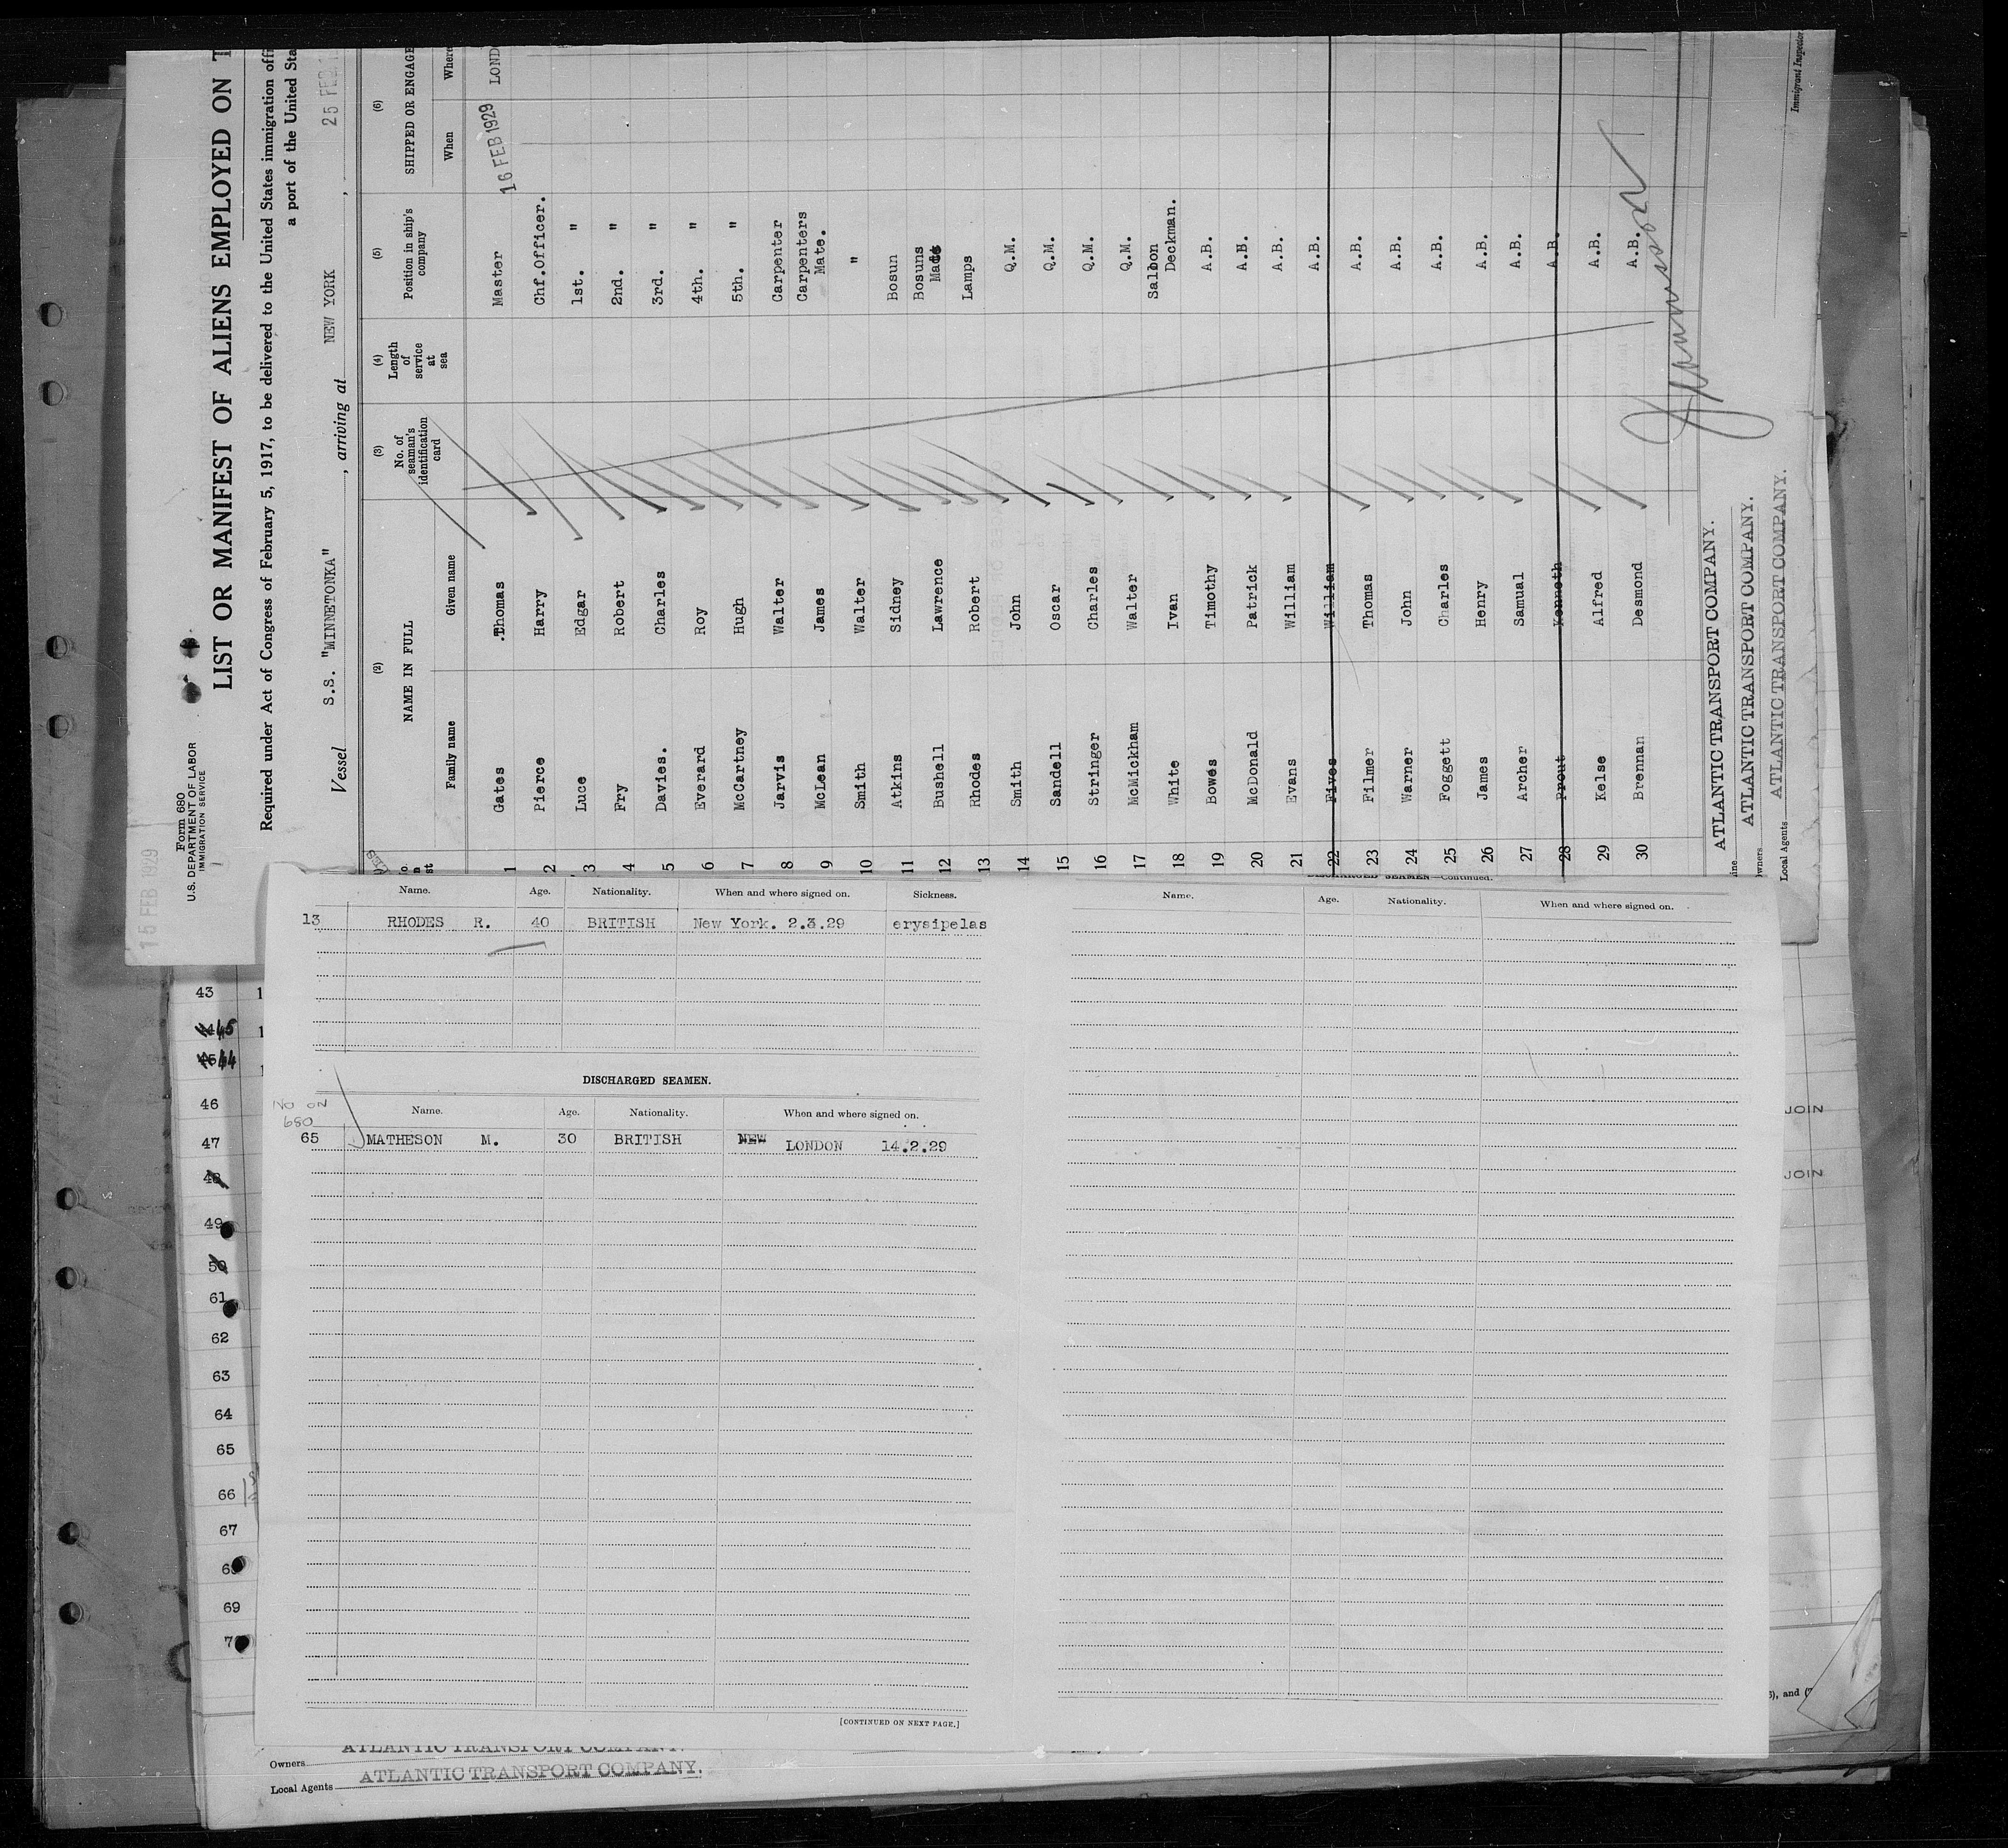 15 FEB 1929
Form 680
U.S. DEPARTMENT OF LABOR
IMMIGRATION SERVICE
LIST OR MANIFEST OF ALIENS EMPLOYED ON T
Required under Act of Congress of February 5, 1917, to be delivered to the United States immigration offi
a port of the United Sta
Vessel S.S. "MINNETONKA", arriving at NEW YORK, 25 FEB 1
(2) (3) (4) (5) (6)
NAME IN FULL No. of seaman's identification card Length of service at sea Position in ship's company SHIPPED OR ENGAGE
Family name Given name When Where
1 Gates Thomas Master 16 FEB 1929 LOND
2 Pierce Harry Chf.Officer.
3 Luce Edgar 1st. "
4 Fry Robert 2nd. "
5 Davies. Charles 3rd. "
6 Everard Roy 4th. "
7 McCartney Hugh 5th. "
8 Jarvis Walter Carpenter
9 McLean James Carpenters Mate.
10 Smith Walter "
11 Atkins Sidney Bosun
12 Bushell Lawrence Bosuns Mate
13 Rhodes Robert Lamps
14 Smith John Q.M.
15 Sandell Oscar Q.M.
16 Stringer Charles Q.M.
17 McMickham Walter Q.M.
18 White Ivan Saloon Deckman.
19 Bowes Timothy A.B.
20 McDonald Patrick A.B.
21 Evans William A.B.
22 Fives William A.B.
23 Filmer Thomas A.B.
24 Warner John A.B.
25 Foggett Charles A.B.
26 James Henry A.B.
27 Archer Samual A.B.
28 Prout Kenneth A.B.
29 Kelse Alfred A.B.
30 Brennan Desmond A.B.
ATLANTIC TRANSPORT COMPANY.
ATLANTIC TRANSPORT COMPANY.
Local Agents ATLANTIC TRANSPORT COMPANY.
Immigrant Inspector
Name. Age. Nationality. When and where signed on. Sickness.
13 RHODES R. 40 BRITISH New York. 2.3.29 erysipelas
DISCHARGED SEAMEN.
Name. Age. Nationality. When and where signed on.
No on
680
65 MATHESON M. 30 BRITISH NEW LONDON 14.2.29
[CONTINUED ON NEXT PAGE.]
DISCHARGED SEAMEN—Continued.
Name. Age. Nationality. When and where signed on.
43
45
44
46
47
48
49
50
61
62
63
64
65
66
67
68
69
JOIN
JOIN
), and (
ATLANTIC TRANSPORT COMPANY.
Owners
Local Agents ATLANTIC TRANSPORT COMPANY.